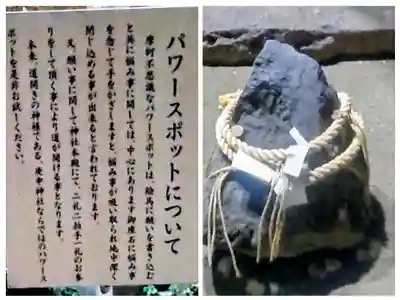 パワースポットについて
摩訶不思議なパワースポットは、絵馬に願いを書き込む
と共に悩み事に関しては、中心にあります御座石に悩み事
を念じて手をかざしますと、悩み事が吸い取られ地中深く
閉じ込める事が出来ると言われております。
又、願い事に関して神社本殿にて、二礼二拍手一礼のお参
りをして頂く事により道が開ける事となります。
本来、道開きの神様である、神社ならではのパワース
ポットを是非お試しください。